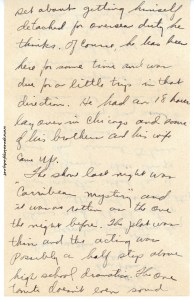 set about getting himself
detached for oversea duty he
thinks. Of course, he has been
here for some time and was
due for a little trip in that
direction. He had an 18 hours
lay over in Chicago and some
of his brothers and his wife
came up.
The show last night was
"Carribean Mystery" and
it was as rotten as the one
the night before. The plot was
thin and the acting was
possibly a half step above
high school dramatics. The one
tonite doesn't even sound